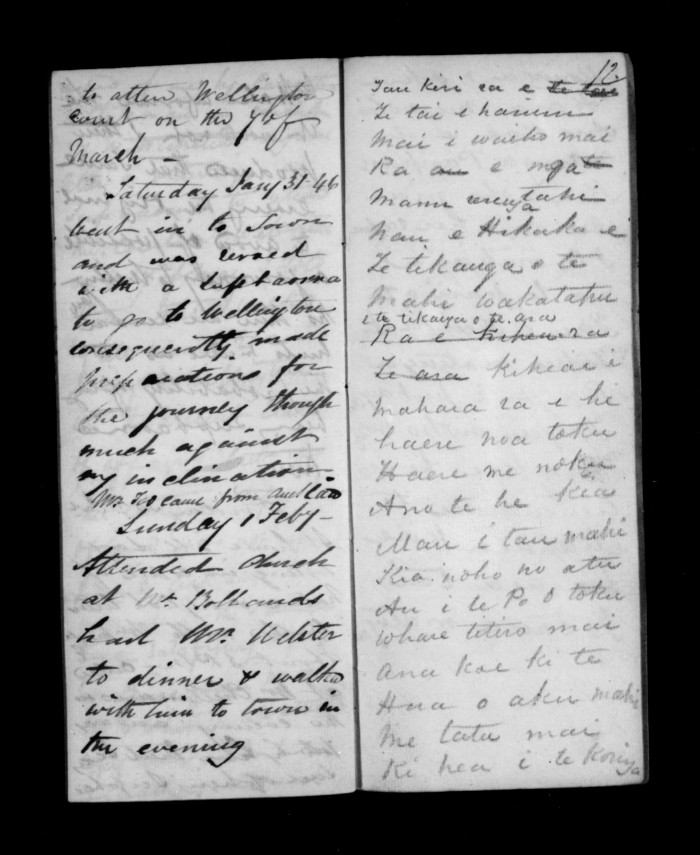 to atten Wellington
court on the 7 of
March –
Saturday Jany 31 46
went in to Town
and was served
with a Supboenna
to go to Wellington
consequently made
preparations for
the journey though
much against
my inclination
Mr came from Auckland
Sunday 1 Feby –
Attended Church
at Mr Bolhands
had Mr Webster
to dinner & walked
with him to town in
the evening
12.
Tau kiri ra e te tai
Te tai e haruru
mai i waiho mai
Ra au e nga te
manu
hau e Hikaika e
Te tikanga o te
Mahi wakatatu
i te tikanga o te ara
Ra e kihea ra
Te ara kiheai i
mahara ra e he
haere noa toku
Haere me noku
Ano te he kia
Mau i tau mahi
Kia noho no atu
Au i te Po O toku
whare titiro mai
ana koe ki te
Hua o aku mahi
me tatu mai
Ki hea i te Koringa